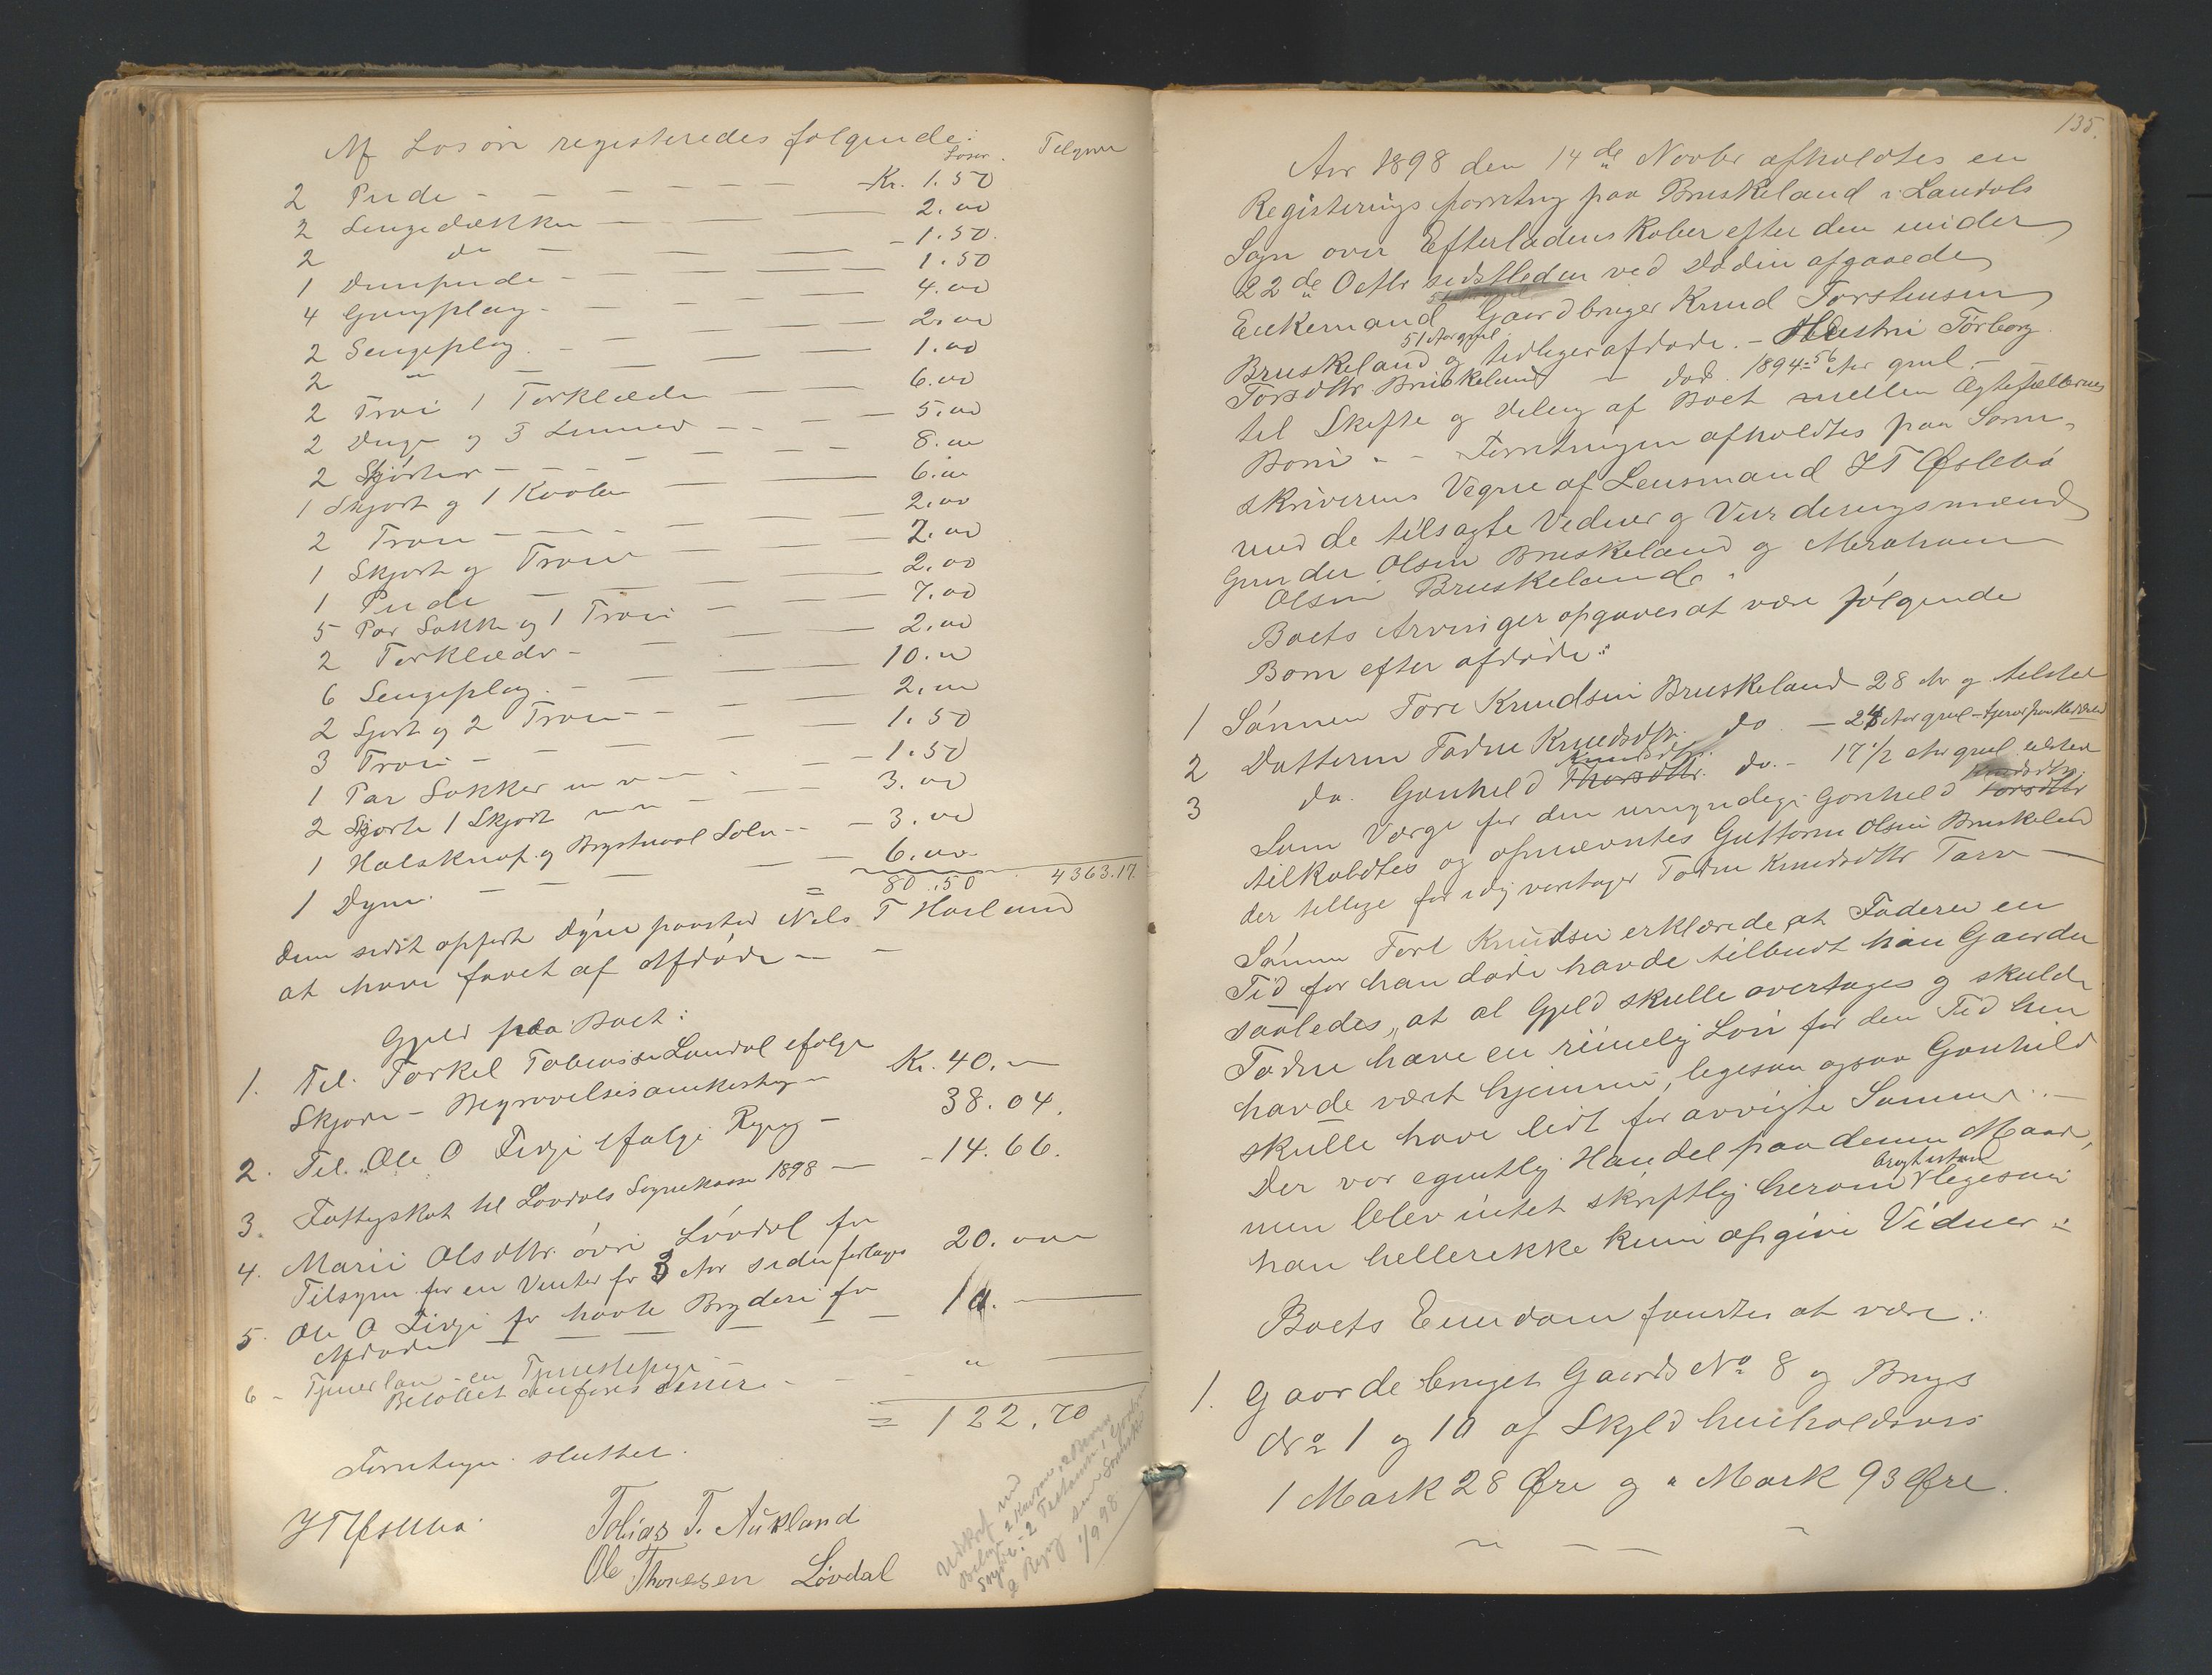 Af Løsøre registeredes følgende:
Løsøre. Tilgode
2 Pude - Kr. 1.50
2 Sengedækken - 2.00
2 do - 1.50
1 Dunpude - 1.50
4 Gangplag - 4.00
2 Sengeplag - 2.00
2 " - 1.00
2 Trøie 1 Tørklæde - 6.00
2 Duge og 3 Linned - 5.00
2 Skjørter - 8.00
1 Skjort og 1 Kjole - 6.00
2 Trøie - 2.00
1 Skjort og Trøie - 2.00
1 Pude - 2.00
5 Par Sokke og 1 Trøie - 7.00
2 Tørklæder - 2.00
6 Sengeplag - 10.00
2 Skjort og 2 Trøie - 2.00
3 Trøie - 1.50
1 Par Sokker m v - 1.50
2 Skjorte 1 Skjort m m - 3.00
1 Halsknap og Brystnaal Sølv - 3.00
1 Dyne - 6.00
= 80.50 4363.17
Den sidst opført Dyne paastod Nils T Haaland
at have faaet af Afdøde -
Gjeld paa Boet:
1. Til Torkel Tobiassen Laudal ifølge
Skjøde - Begravelsesomkostning - Kr. 40.-
2. Til Ole O Livji ifølge Regng - 38.04.
3. Fattigskat til Løvdals Sognekasse 1898 - 14.66.
4. Marie Olsdtr. øvre Løvdal for
Tilsyn for en Vinter for 3 Aar siden forlanges 20.00
5. Ole O Livji for havte Bryderi for
Afdøde - 10.-
6 - Tjenerløn - en Tjenestepige -
Beløbet anføres senere - "
= 122.70
Forretngn. sluttet.
J T Øslebø
Tobias T. Aukland
Ole Thoresen Løvdal
1/9 98
135.
Aar 1898 den 14de Novbr afholdtes en
Registerings forretng paa Bruskeland i Laudals
Sogn over Efterladenskaber efter den under
22de Octbr sidstleden ved Døden afgaaede
Enkemand Gaardbruger Knud Torstensen
51 Aar gml.
Bruskeland og tidligere afdøde - Hustru Torborg
Torsdtr Bruskeland - død 1894 - 56 Aar gml. -
til Skifte og deling af Boet mellem Ægtefællernes
Børn. - Forretningen afholdtes paa Soren-
skriverens Vegne af Lensmand J T Øslebø
med de tilsagte Vidner og Vurderingsmænd
Gunder Olsen Bruskeland og Abraham
Olsen Bruskeland.
Boets Arvinger opgaves at være følgende
Børn efter afdøde:
1 Sønnen Tore Knudsen Bruskeland 28 Ar og tilsted
2 Datteren Todne Knudsdtr. do - 24 Aar gml -
Knudsdtr.
3 do. Gonhild Thorsdtr. do. - 17 1/2 Aar gml tilsted
Knudsdtr.
Som Værge for den umyndige Gonhild Torsdtr
tilkaldtes og opnævntes Guttorm Olsen Bruskeland
der tillige forøvrig varetager Todne Knudsdtr Tarv -
Sønnen Tore Knudsen erklærede, at Faderen en
Tid før han døde havde tilbudt han Gaarden
saaledes, at al Gjeld skulle overtages og skulde
Todne have en rimelig Løn for den Tid hun
havde vært hjemme, ligesaa ogsaa Gonhild
skulle have lidt for avvigte Sommer. -
Der var egentlig Handel paa denne Maade,
men blev intet skriftlig herom ligesom
han hellerikke kunne opgive Vidner.
Boets Eiendom fandtes at være:
1. Gaardebruget Gaards No 8 og Brugs
No 1 og 10 af Skyld henholdsvis
1 Mark 28 Øre og " Mark 93 Øre.